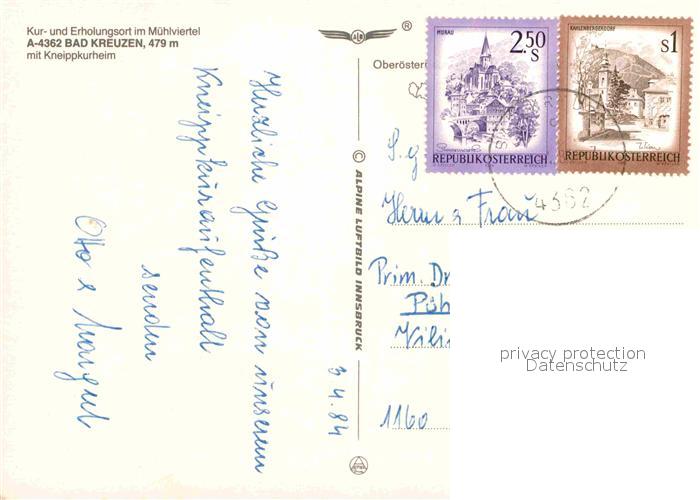 Kur- und Erholungsort im Mühlviertel
A-4362 BAD KREUZEN, 479 m
mit Kneippkurheim
Herzliche Grüße von unserem
Kneippkuraufenthalt
senden
Otto & Margit
3 4.84
© ALPINE LUFTBILD INNSBRUCK
®
Oberösterr
MURAU
2.50
S
REPUBLIK ÖSTERREICH
KAHLENBERGERDORF
S1
Wien
REPUBLIK ÖSTERREICH
4362
S.g
Herrn & Frau
Prim. Dr
Püh
1160
privacy protection
Datenschutz